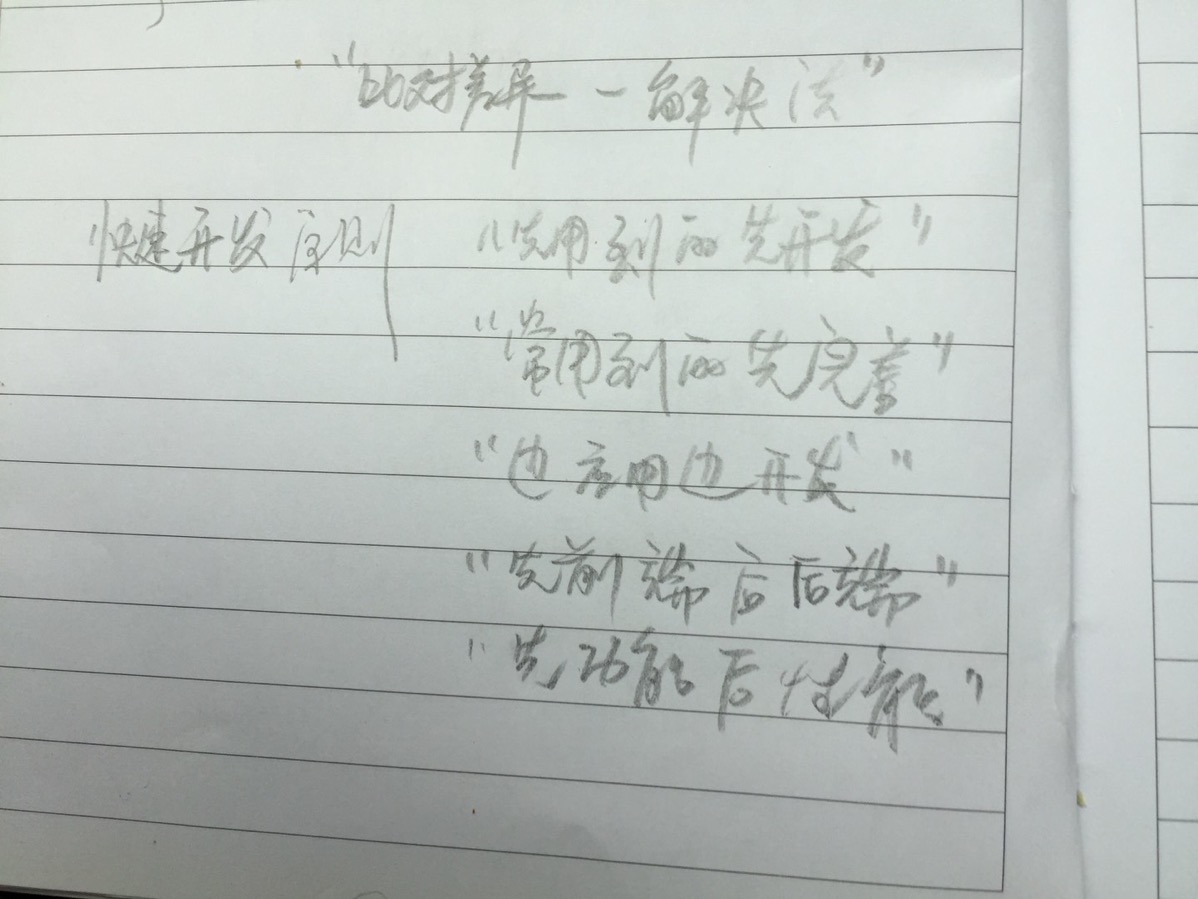 "比对差异一解决法"
快速开发原则 "先用到的先开发"
"常用到的先完善"
"边应用边开发"
"先前端后后端"
"先功能后性能"